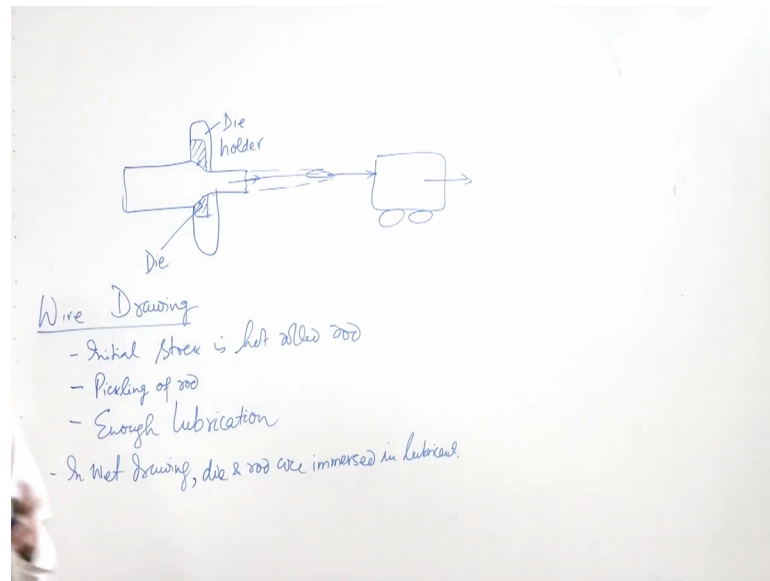 Die
holder
Die
Wire Drawing
- Initial stock is hot rolled rod
- Pickling of rod
- Enough lubrication
- In wet drawing, die & rod are immersed in lubricant.